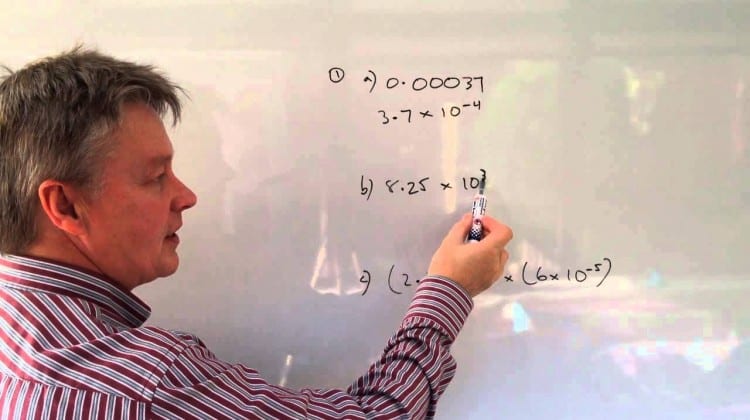 ① a) 0.00037
3.7 × 10⁻⁴
b) 8.25 × 10³
c) (2. × (6×10⁻⁵)